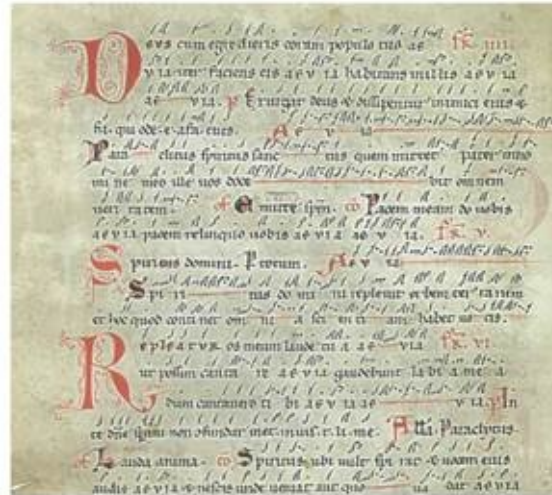 Deus cum egredieris coram populo tuo ae fr. iiii.
via iter faciens eis aevia habitans in illis aevia
ae via. p Exurgat deus & dissipentur inimici eius &
fu. qui ode. e. a fa. eius. Ae v ia
Para clitus spiritus sanc tus quem mittet pater in no
mi ne meo ille uos doce bit omnem
ueri tatem. of Emitte spm. co Pacem meam do uobis
aevia pacem relinquo uobis aevia ae v ia. fr. v.
Spiritus domini. Ae v ia
Spi ri tus do mi ni repleuit orbem ter ra rum
et hoc quod conti net om ni a sci en ti am habet uo cis.
Repleatur os meum laude tu a ae via fr. vi
ut possim canta re aevia gaudebunt la bi a me a
dum cantauero ti bi aevia ae v ia. p In
te dne spaui non confundar in et. in ius. t. li. me. Atta. Paraclitus
of Lauda anima. co Spiritus ubi uult spi rat & uocem eius
audis aevia & nescis unde ueniat aut quo ua dat aevia